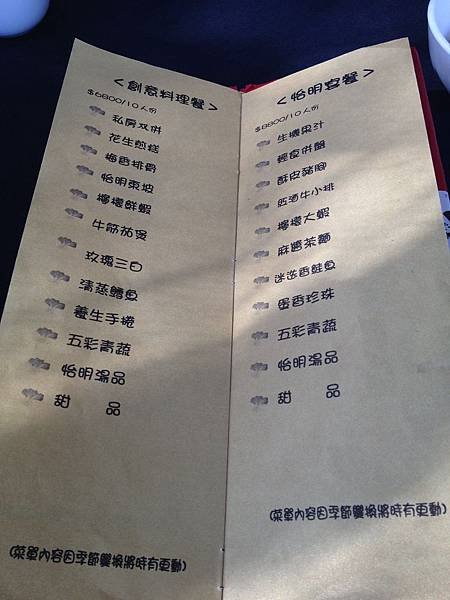 <創意料理餐>
$6800/10人份
私房双併
花生煎糕
梅香排骨
怡明東坡
檸檬鮮蝦
牛筋茄煲
玫瑰三白
清蒸鱈魚
養生手捲
五彩青蔬
怡明湯品
甜 品
(菜單內容因季節變換將時有更動)
<怡明宴餐>
$8800/10人份
生機果汁
輕食併盤
酥皮豬腳
紅酒牛小排
檸檬大蝦
麻醬茶麵
迷迭香鮭魚
蛋香珍珠
五彩青蔬
怡明湯品
甜 品
(菜單內容因季節變換將時有更動)